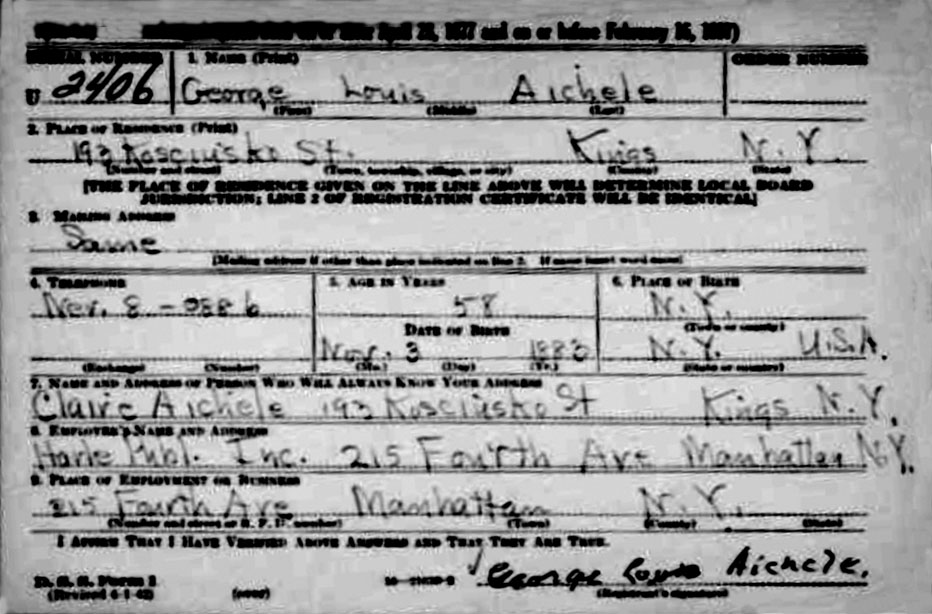 April 28, 1877 and on or before February 16, 1897)
SERIAL NUMBER 1. NAME (Print) ORDER NUMBER
U 2406 George Louis Aichele
(First) (Middle) (Last)
2. PLACE OF RESIDENCE (Print)
193 Kosciusko St. Kings N.Y.
(Number and street) (Town, township, village, or city) (County) (State)
[THE PLACE OF RESIDENCE GIVEN ON THE LINE ABOVE WILL DETERMINE LOCAL BOARD
JURISDICTION; LINE 2 OF REGISTRATION CERTIFICATE WILL BE IDENTICAL]
3. MAILING ADDRESS
Same
[Mailing address if other than place indicated on line 2. If same insert word same]
4. TELEPHONE 5. AGE IN YEARS 6. PLACE OF BIRTH
Nev. 8 - 0886 58 N.Y.
DATE OF BIRTH (Town or county)
Nov. 3 1883 N.Y. U.S.A.
(Exchange) (Number) (Mo.) (Day) (Yr.) (State or country)
7. NAME AND ADDRESS OF PERSON WHO WILL ALWAYS KNOW YOUR ADDRESS
Claire Aichele 193 Kosciusko St Kings N.Y.
8. EMPLOYER'S NAME AND ADDRESS
Harle Publ. Inc. 215 Fourth Ave Manhattan N.Y.
9. PLACE OF EMPLOYMENT OR BUSINESS
215 Fourth Ave Manhattan N.Y.
(Number and street or R. F. D. number) (Town) (County) (State)
I AFFIRM THAT I HAVE VERIFIED ABOVE ANSWERS AND THAT THEY ARE TRUE.
D. S. S. Form 1 George Louis Aichele.
(Revised 4-1-42) (over) (Registrant's signature)